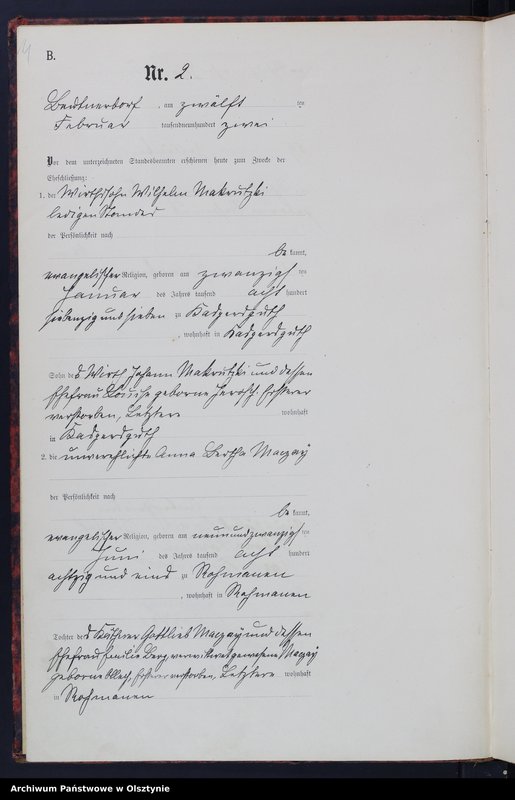 B.
Nr. 2.
Beutnerdorf, am zwölft ten
Februar tausendneunhundert zwei
Vor dem unterzeichneten Standesbeamten erschienen heute zum Zwecke der
Eheschließung:
1. der Wirthssohn Wilhelm Makrutzki
ledigen Standes
der Persönlichkeit nach
be kannt,
evangelischer Religion, geboren am zwanzigst ten
Januar des Jahres tausend acht hundert
siebenzig und sieben zu Kaspersguth
wohnhaft in Kaspersguth
Sohn des Wirth Johann Makrutzki und dessen
Ehefrau Louise geborne Ersterer
verstorben, Letztere wohnhaft
in Kaspersguth
2. die unverehelichte Anna Bertha Maczay
der Persönlichkeit nach
be kannt,
evangelischer Religion, geboren am neunundzwanzigst ten
Juni des Jahres tausend acht hundert
achtzig und eins zu Rohmanen
, wohnhaft in Rohmanen
Tochter des Käthner Gottlieb Maczay und dessen
Ehefrau gewesene Maczay
geborne Ersterer verstorben, Letztere wohnhaft
in Rohmanen
Archiwum Państwowe w Olsztynie